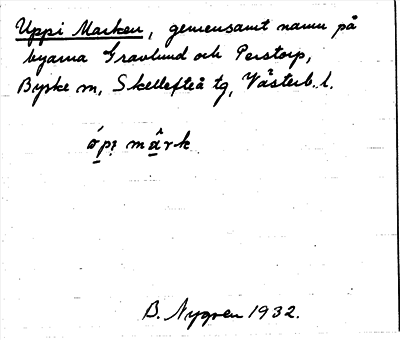 Uppi Marken, gemensamt namn på
byarna Gravlund och Perstorp,
Byske sn, Skellefteå tg, Västerb. l.
ópi mârk
B. Nygren 1932.